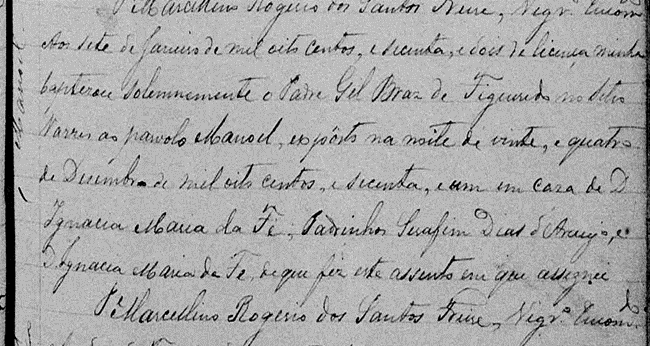 Pe Marcellino Rogerio dos Santos Freire, Vigro Encomdo
Manoel
Aos sete de Janeiro de mil oito centos, e secenta, e dois de licença minha
baptizou solemnemente o Padre Gil Braz de Figueiredo no Sitio
Varzea ao parvolo Manoel, expósto na noite de vinte, e quatro
de Dezembro de mil oito centos, e secenta, e um em caza de D
Ignacia Maria da Fé, Padrinhos Serafim Dias d'Araujo, e
D Ignacia Maria da Fé, de que fiz este assento em que assignei
Pe Marcellino Rogerio dos Santos Freire, Vigro Encomdo